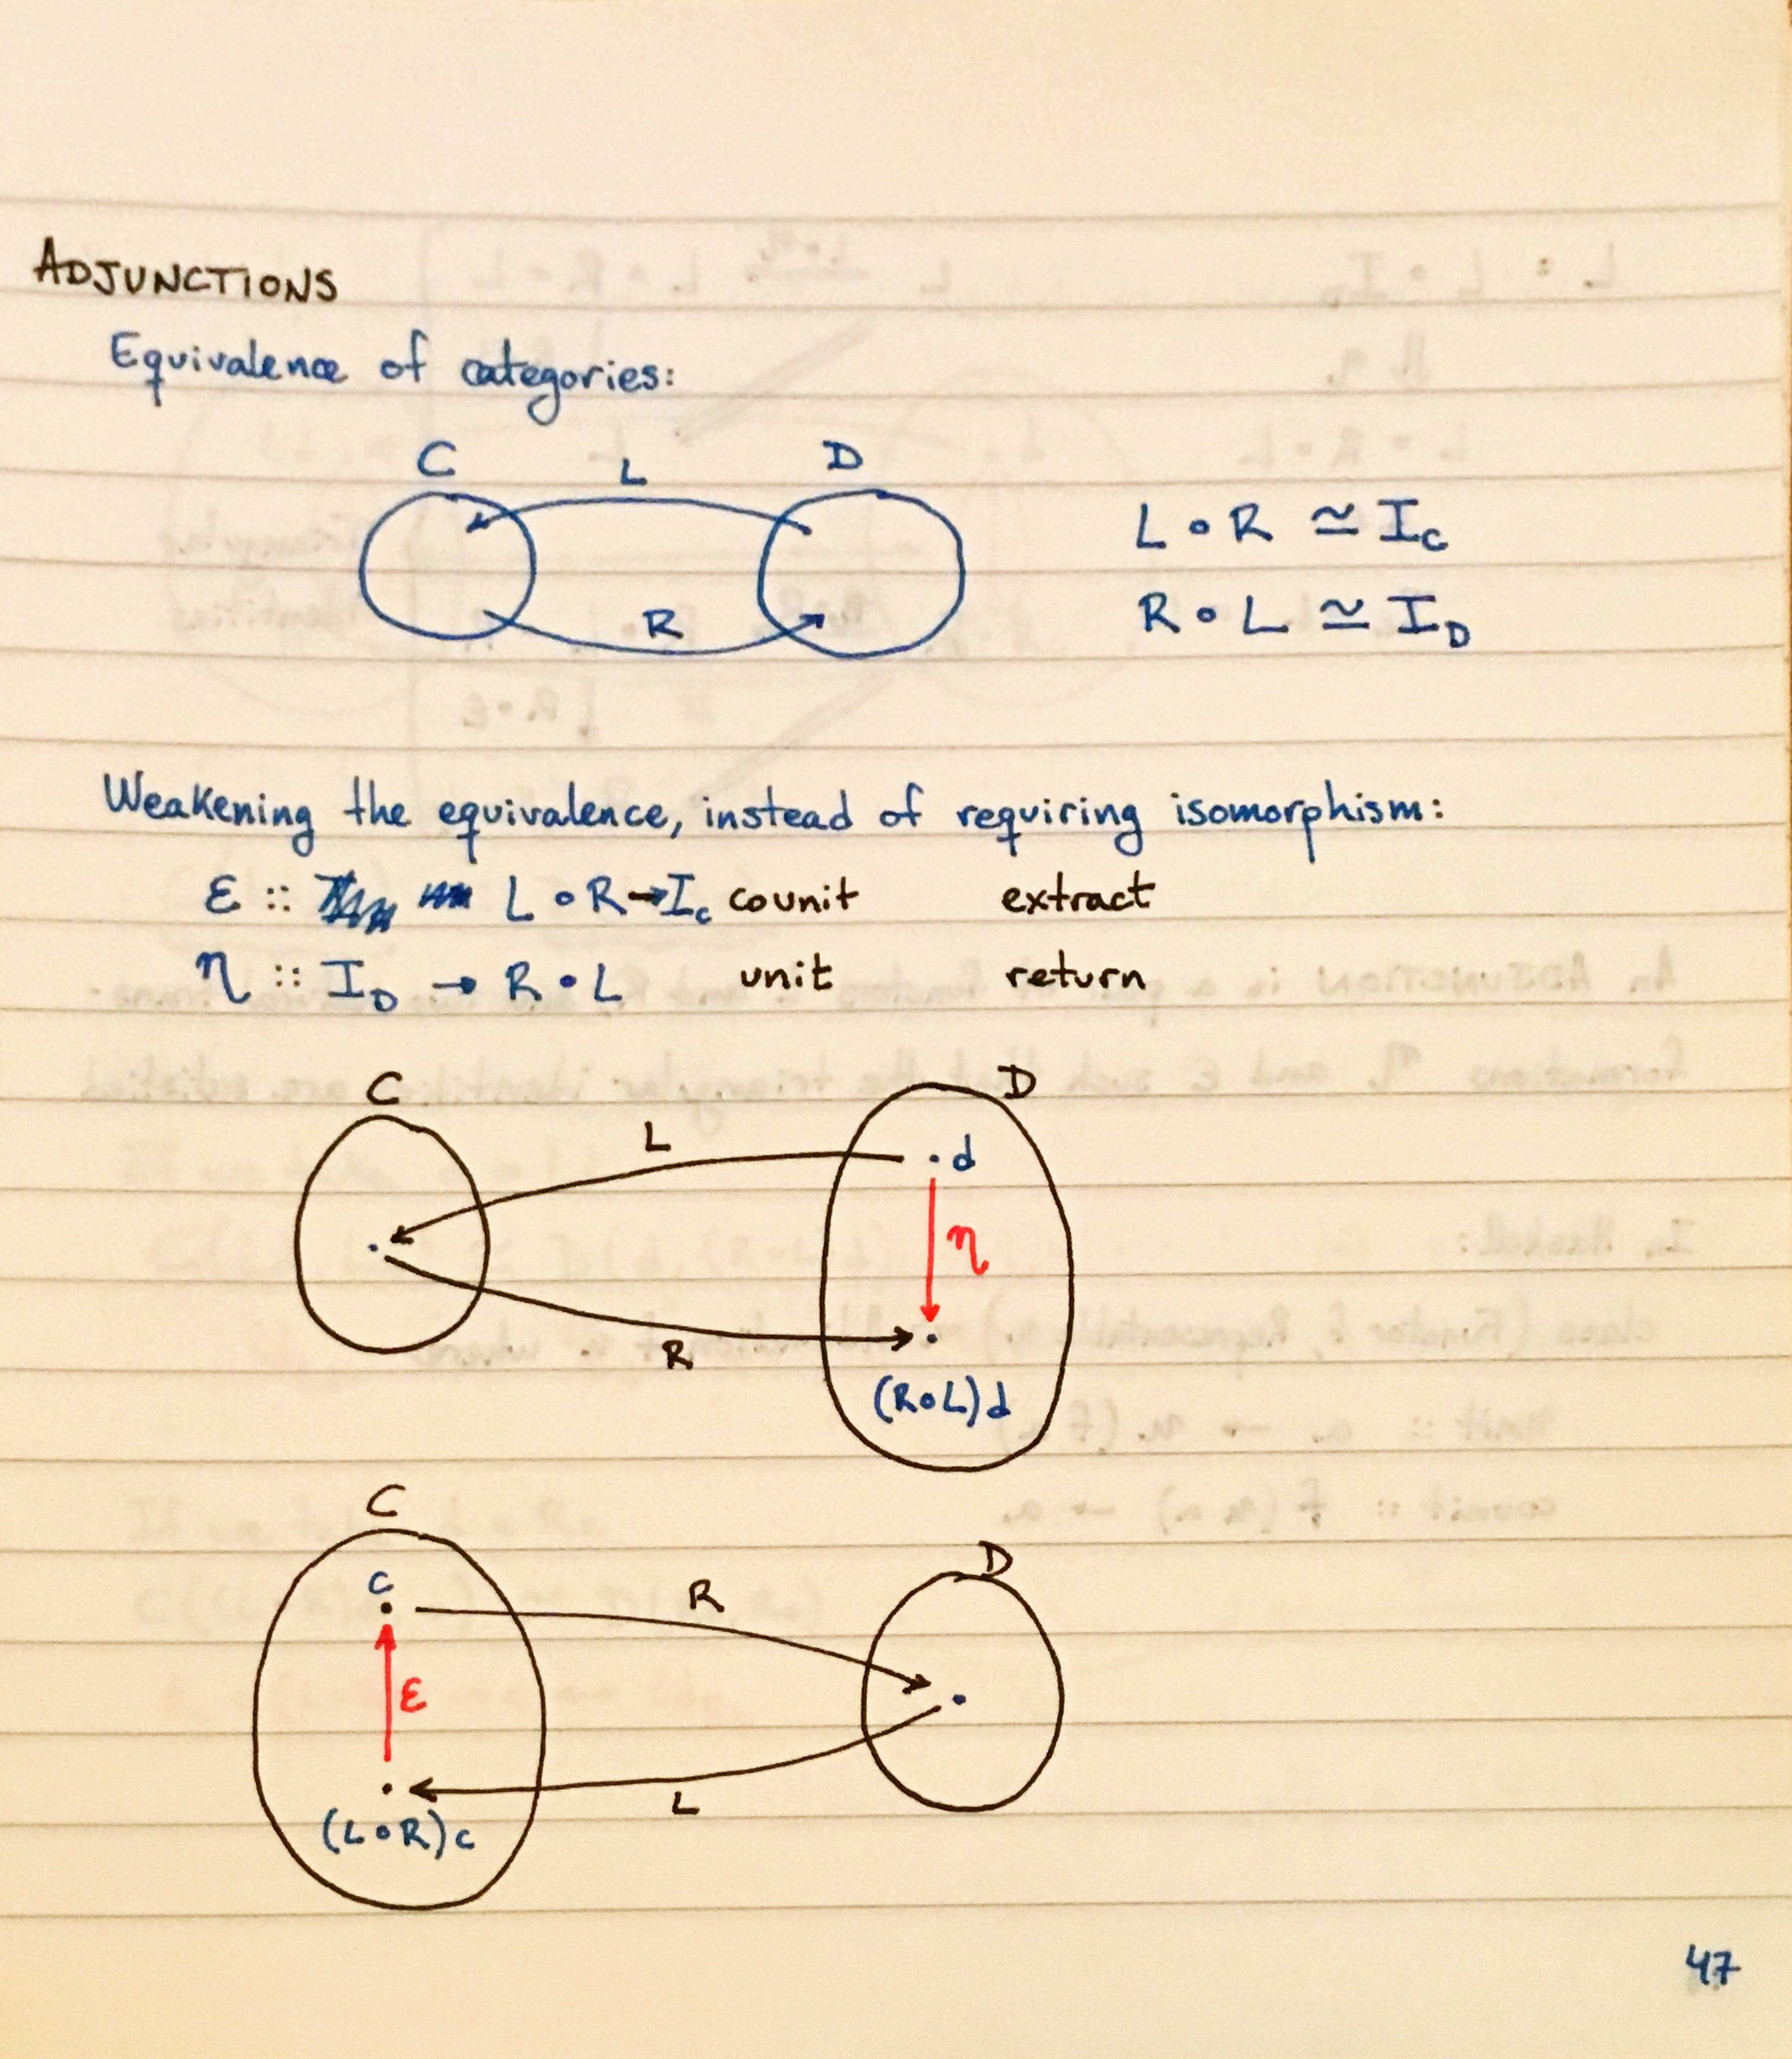 ADJUNCTIONS
Equivalence of categories:
C L D
L ∘ R ≃ I_C
R
R ∘ L ≃ I_D
Weakening the equivalence, instead of requiring isomorphism:
ε :: L ∘ R → I_C counit extract
η :: I_D → R ∘ L unit return
C D
L
d
η
R
(R∘L)d
C
D
c
R
ε
L
(L∘R)c
47